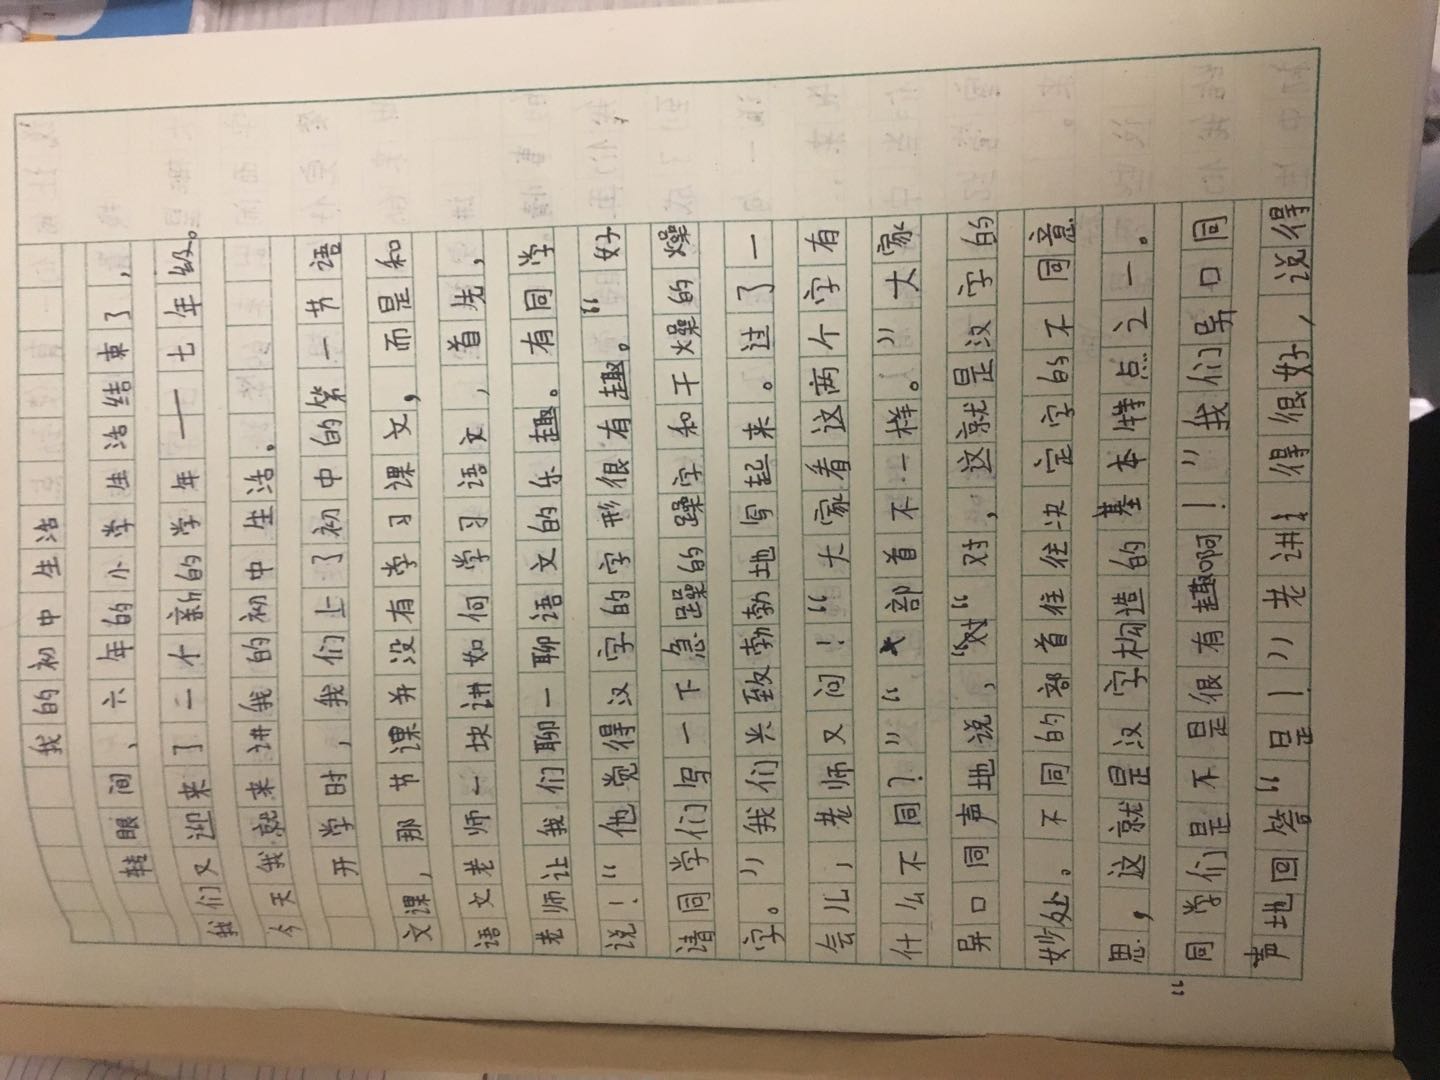 我的初中生活
转眼间、六年的小学生活结束了，
我们又迎来了一个新的学年——七年级。
今天我就来讲我的初中生活。
开学时，我们上了初中的第一节语
文课，那节课并没有学习课文，而是和
语文老师一块讲如何学习语文，首先，
老师让我们聊一聊语文的乐趣。有同学
说！“他觉得汉字的字形很有趣。“好
请同学们写一下急躁的躁字和干燥的燥
字。”我们兴致勃勃地写起来。过了一
会儿，老师又问！“大家看这两个字有
什么不同？”“部首不一样。”大家
异口同声地说，“对“对，这就是汉字的
妙处。不同的部首往往决定字的不同意
思，这就是汉字构造的基本特点之一。
“同学们是不是很有趣啊！”我们异口同
声地回答“是！”老讲！得很好，说得